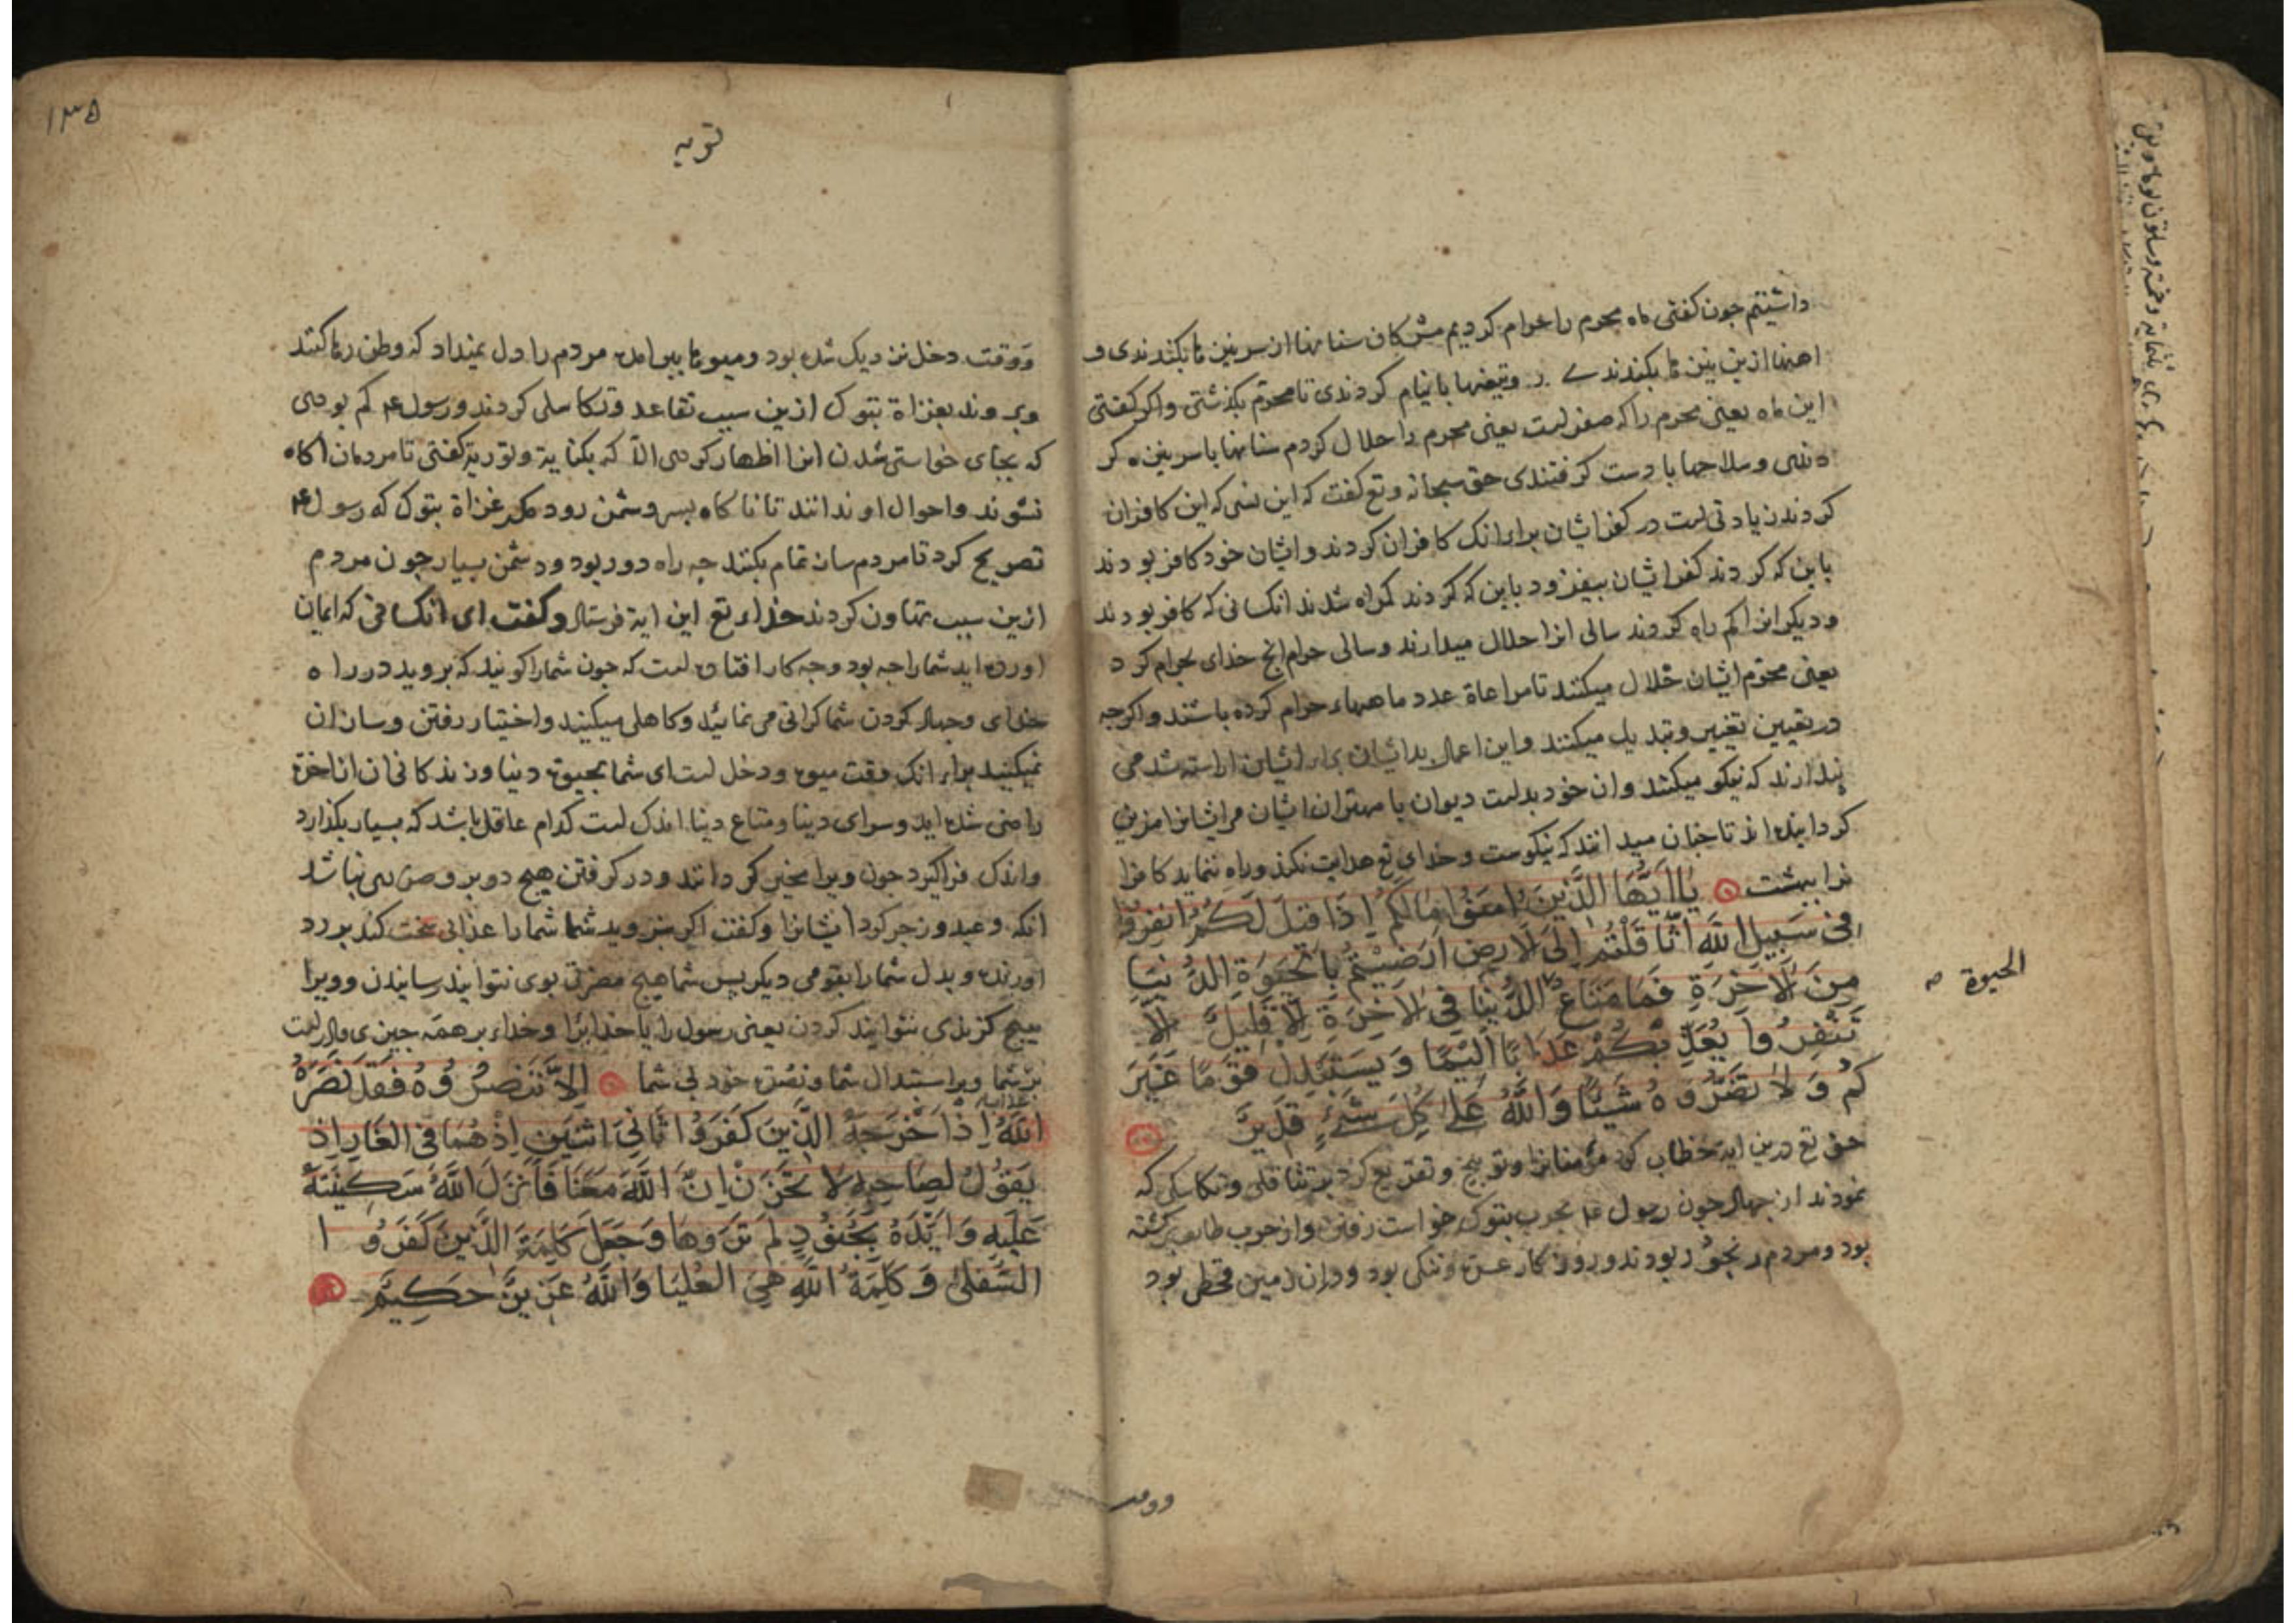 داشتیم جون کفتی ماه محرم را حرام کردیم مشرکان سنانها از سر نیزه ها بکندندی و
این ماه یعنی محرم را که صفرلست یعنی محرم را حلال کردم سنانها با سر نیزه کر
دندی وسلاحها با دست کرفتندی حق سبحانه وتع کفت که این نسی که این کافران
کردند زیادتی لست در کفر ایشان برای انک کافران کردند وایشان خود کافر بودند
باین که کردند کفر ایشان بیفزود باین که کردند کمراه شدند انکسانی که کافر بودند
ودیکران را کم راه کردند سالی انرا حلال میدارند وسالی حرام انج خدای حرام کرد
یعنی محرم ایشان حلال میکنند تا مراعاة عدد ماههاء حرام کرده باشند واکرجه
در تعیین تغییر وتبدیل میکنند واین اعمال بد ایشان برای ایشان اراسته شد می
پندارند که نیکو میکنند وان خود بدلست دیوان یا مهتران ایشان مر ایشانرا مزین
کردانیده اند تا جنان میدانند که نیکوست وخدای تع هدایت نکند وراه ننماید کافرا
نرا ببهشت یَا اَیُّهَا الَّذِینَ اٰمَنُوا مَالَكُمْ اِذَا قِیلَ لَكُمُ انْفِرُوْا
فِی سَبِیلِ اللّٰهِ اثَّاقَلْتُمْ اِلَی الْاَرْضِ اَرَضِیْتُمْ بِالْحَیَوةِ الدُّنْیَا
مِنَ الْاٰخِرَةِ فَمَا مَتَاعُ الدُّنْیَا فِی الْاٰخِرَةِ اِلَّا قَلِیلٌ اِلَّا
تَنْفِرُوا یُعَذِّبْكُمْ عَذَابًا اَلِیْمًا وَیَسْتَبْدِلْ قَوْمًا غَیْرَ
كُمْ وَلَا تَضُرُّوْهُ شَیْئًا وَاللّٰهُ عَلٰی كُلِّ شَیْءٍ قَدِیْرٌ
حق تع درین ایة خطاب کرد مؤمنانرا وتوبیخ وتقریع کرد بر تثاقلی وتکاسلی که
نمودند از جهاد جون رسول عم بحرب بتوک خواست رفتن واز حرب طایف
بود ومردم رنجور بودند وروزکار عسرة وتنکی بود ودران زمین قحطی بود
الحیوة صح
توبه
۱۳۵
ووقت دخل نزدیک شده بود ومیوها ببر امده مردم را دل نمیداد که وطن رها کنند
وبروند بغزاة بتوک ازین سبب تقاعد وتکاسلی کردند ورسول عم کم بودی
که بجای خواستی شدن انرا اظهار کردی الا که بکنایة وتوریة کفتی تا مردمان اکاه
نشوند واحوال او ندانند تا ناکاه بسر دشمن رود مکر غزاة بتوک که رسول عم
تصریح کرد تا مردم ساز تمام بکنند جه راه دور بود ودشمن بسیار جون مردم
ازین سبب تهاون کردند خداء تع این ایة فرستاد وکفت ای انکسانی که ایمان
اورده اید شما را جه بود وجه کار افتاده لست که جون شما را کویند که بروید در راه
خدای وجهاد کردن شما کرانی می نمائید وکاهلی میکنید واختیار رفتن وساز ان
نمیکنید برای انک وقت میوه ودخل لست ای شما بحیوة دنیا وزندکانی ان از اخرة
راضی شده اید وسرای دنیا ومتاع دنیا اندک لست کدام عاقل باشد که بسیار بکذارد
واندک فراکیرد جون ویرا مخیر کردانند ودر کرفتن هیج دو برو ضرری نباشد
انکه وعید وزجر کرد ایشانرا وکفت اکر نروید شما شما را عذابی سخت کند بدرد
اورنده وبدل شما را بقومی دیکر پس شما هیج مضرتی بوی نتوانید رسانیدن وویرا
هیج کزندی نتوانید کردن یعنی رسول را یا خدایرا وخداء بر همه جیزی قادر لست
بر شما وبر استبدال شما ونصرة خود بی شما اِلَّا تَنْصُرُوْهُ فَقَدْ نَصَرَهُ
اللّٰهُ اِذْ اَخْرَجَهُ الَّذِیْنَ كَفَرُوْا ثَانِیَ اثْنَیْنِ اِذْ هُمَا فِی الْغَارِ اِذْ
یَقُوْلُ لِصَاحِبِهِ لَا تَحْزَنْ اِنَّ اللّٰهَ مَعَنَا فَاَنْزَلَ اللّٰهُ سَكِیْنَتَهُ
عَلَیْهِ وَاَیَّدَهُ بِجُنُوْدٍ لَمْ تَرَوْهَا وَجَعَلَ كَلِمَةَ الَّذِیْنَ كَفَرُوْا
السُّفْلٰی وَكَلِمَةُ اللّٰهِ هِیَ الْعُلْیَا وَاللّٰهُ عَزِیْزٌ حَكِیْمٌ